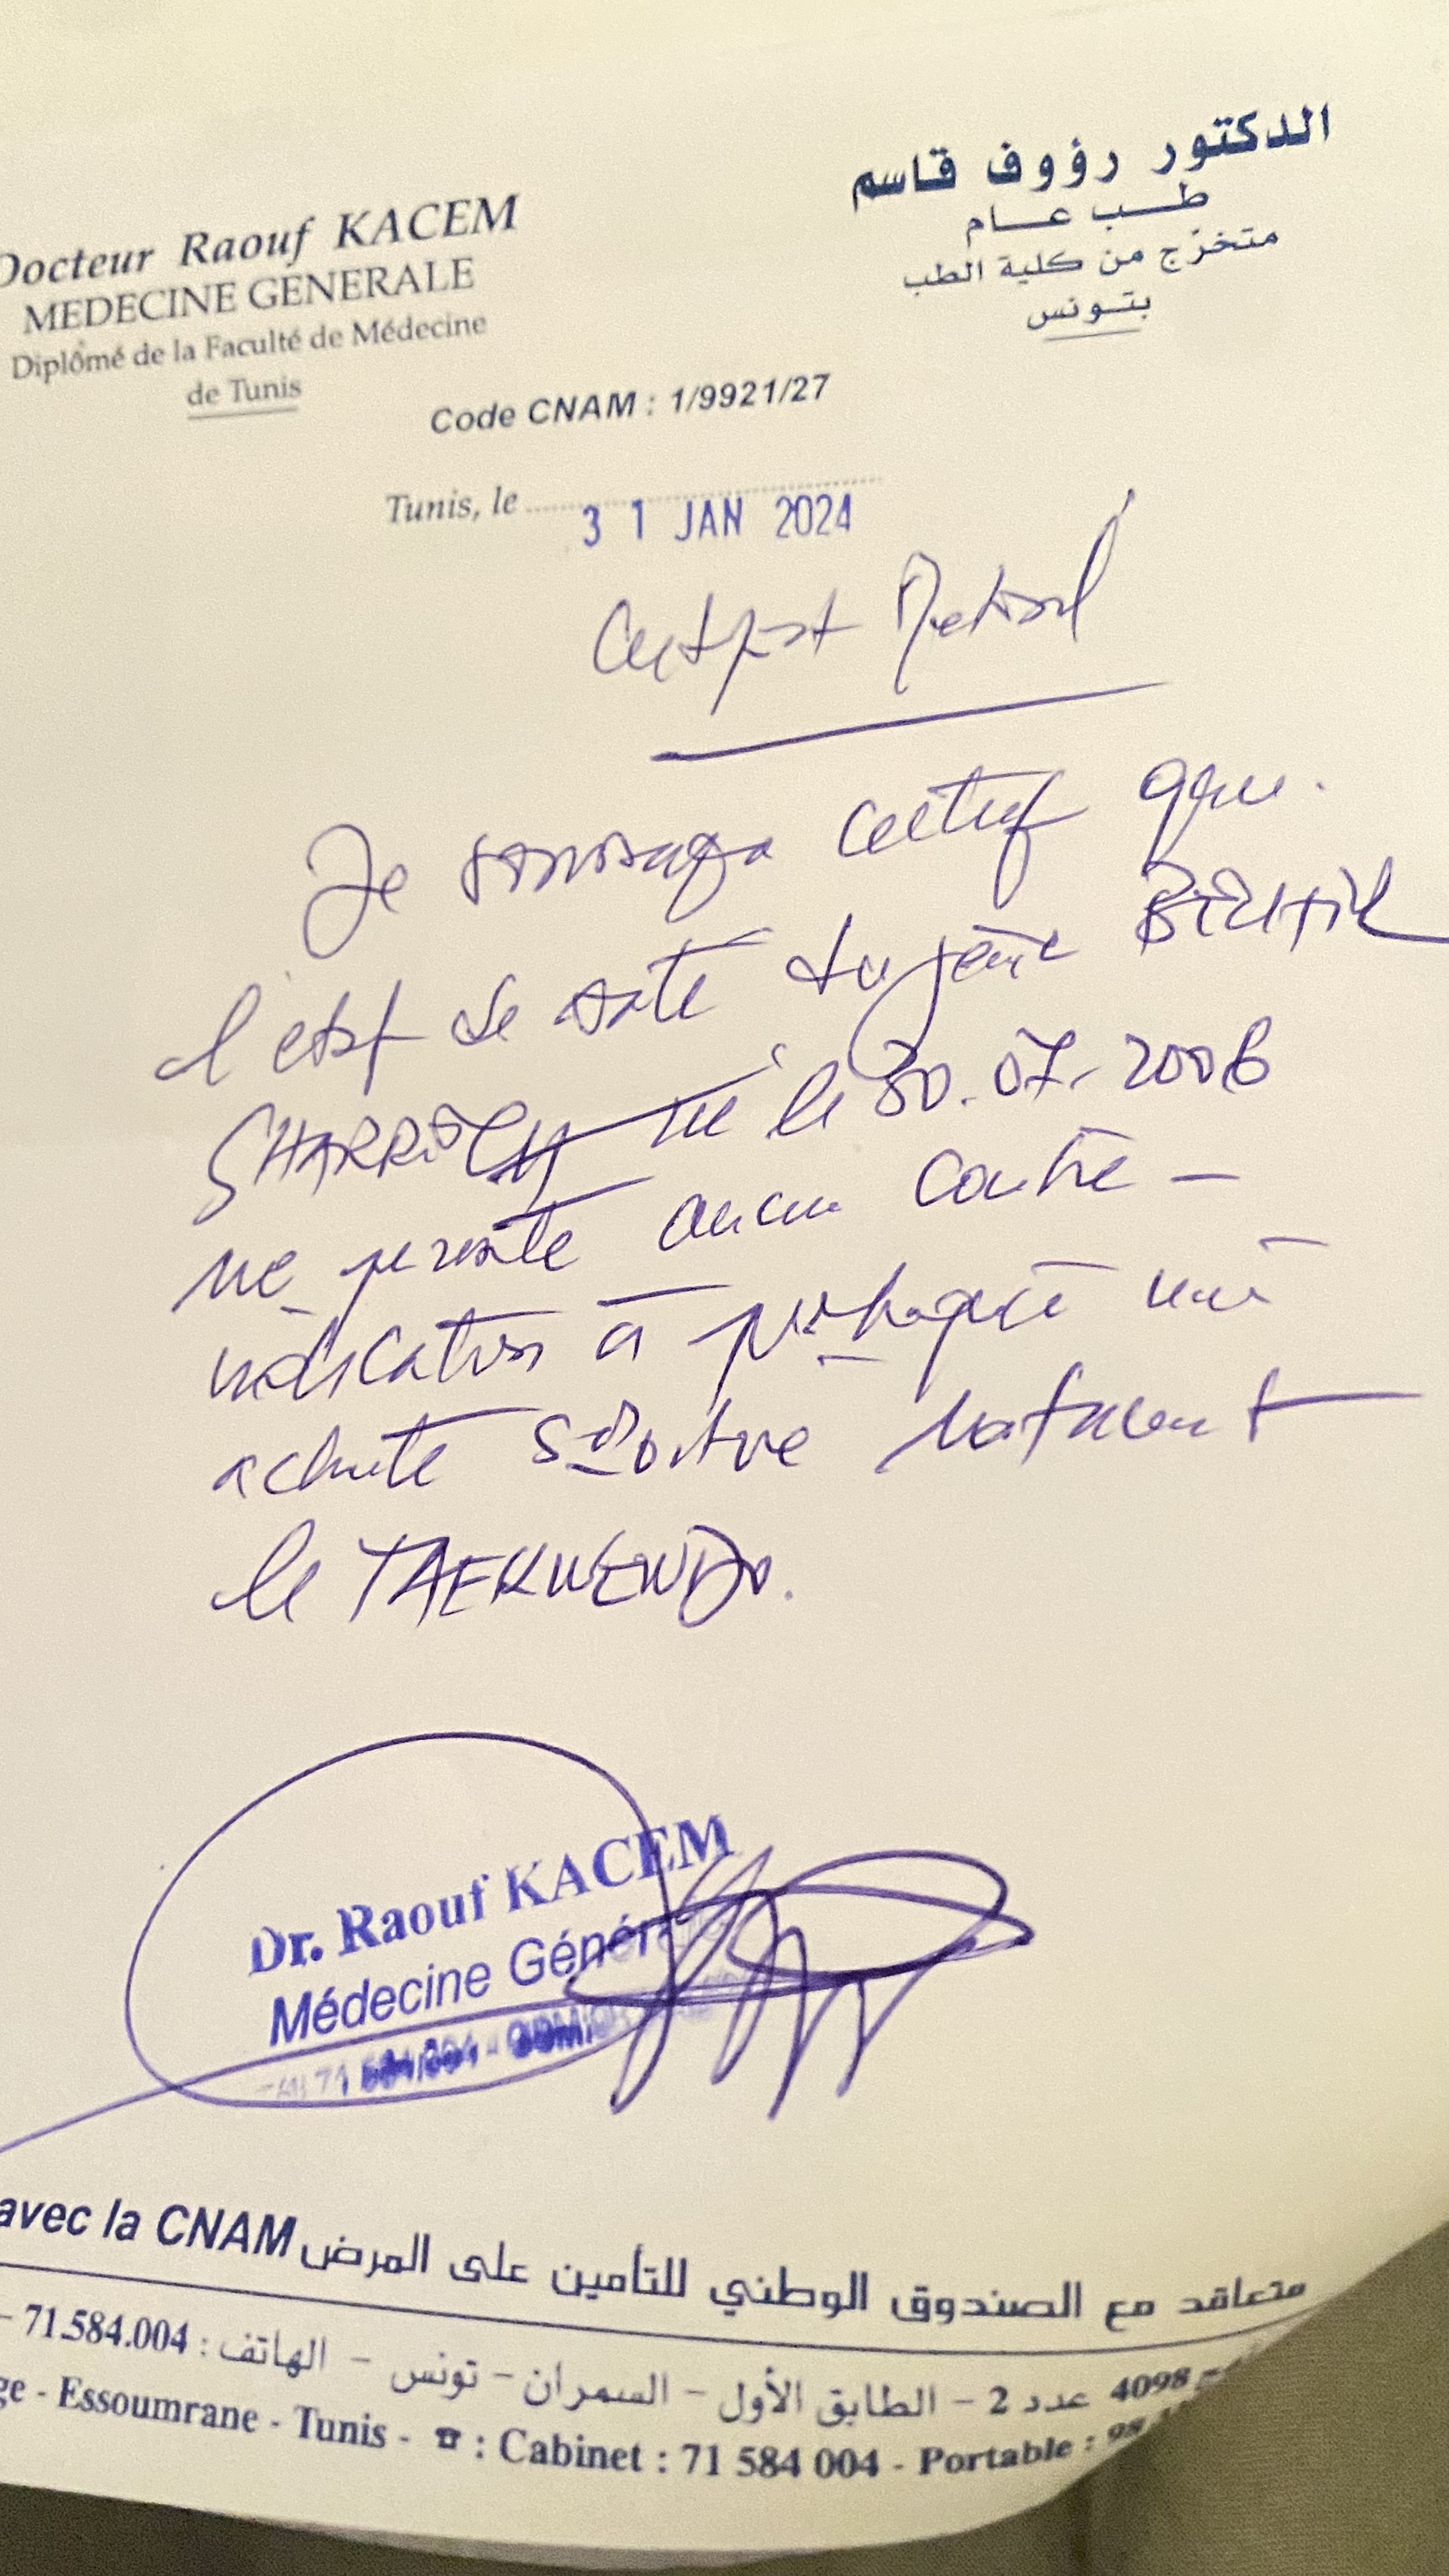 الدكتور رؤوف قاسم
طب عام
متخرّج من كلية الطب
بتونس
Docteur Raouf KACEM
MEDECINE GENERALE
Diplômé de la Faculté de Médecine
de Tunis
Code CNAM : 1/9921/27
Tunis, le 31 JAN 2024
Certificat Médical
Je soussigné certifie que
l'état de santé du jeune
né le 30.07.2006
ne présente aucune contre-
indication à pratiquer une
activité sportive notamment
le TAEKWENDO.
Dr. Raouf KACEM
Médecine Générale
avec la CNAM متعاقد مع الصندوق الوطني للتأمين على المرض
4098 عدد 2 - الطابق الأول - السمران - تونس - الهاتف : 71.584.004 -
- Essoumrane - Tunis - ☎ : Cabinet : 71 584 004 - Portable : 98